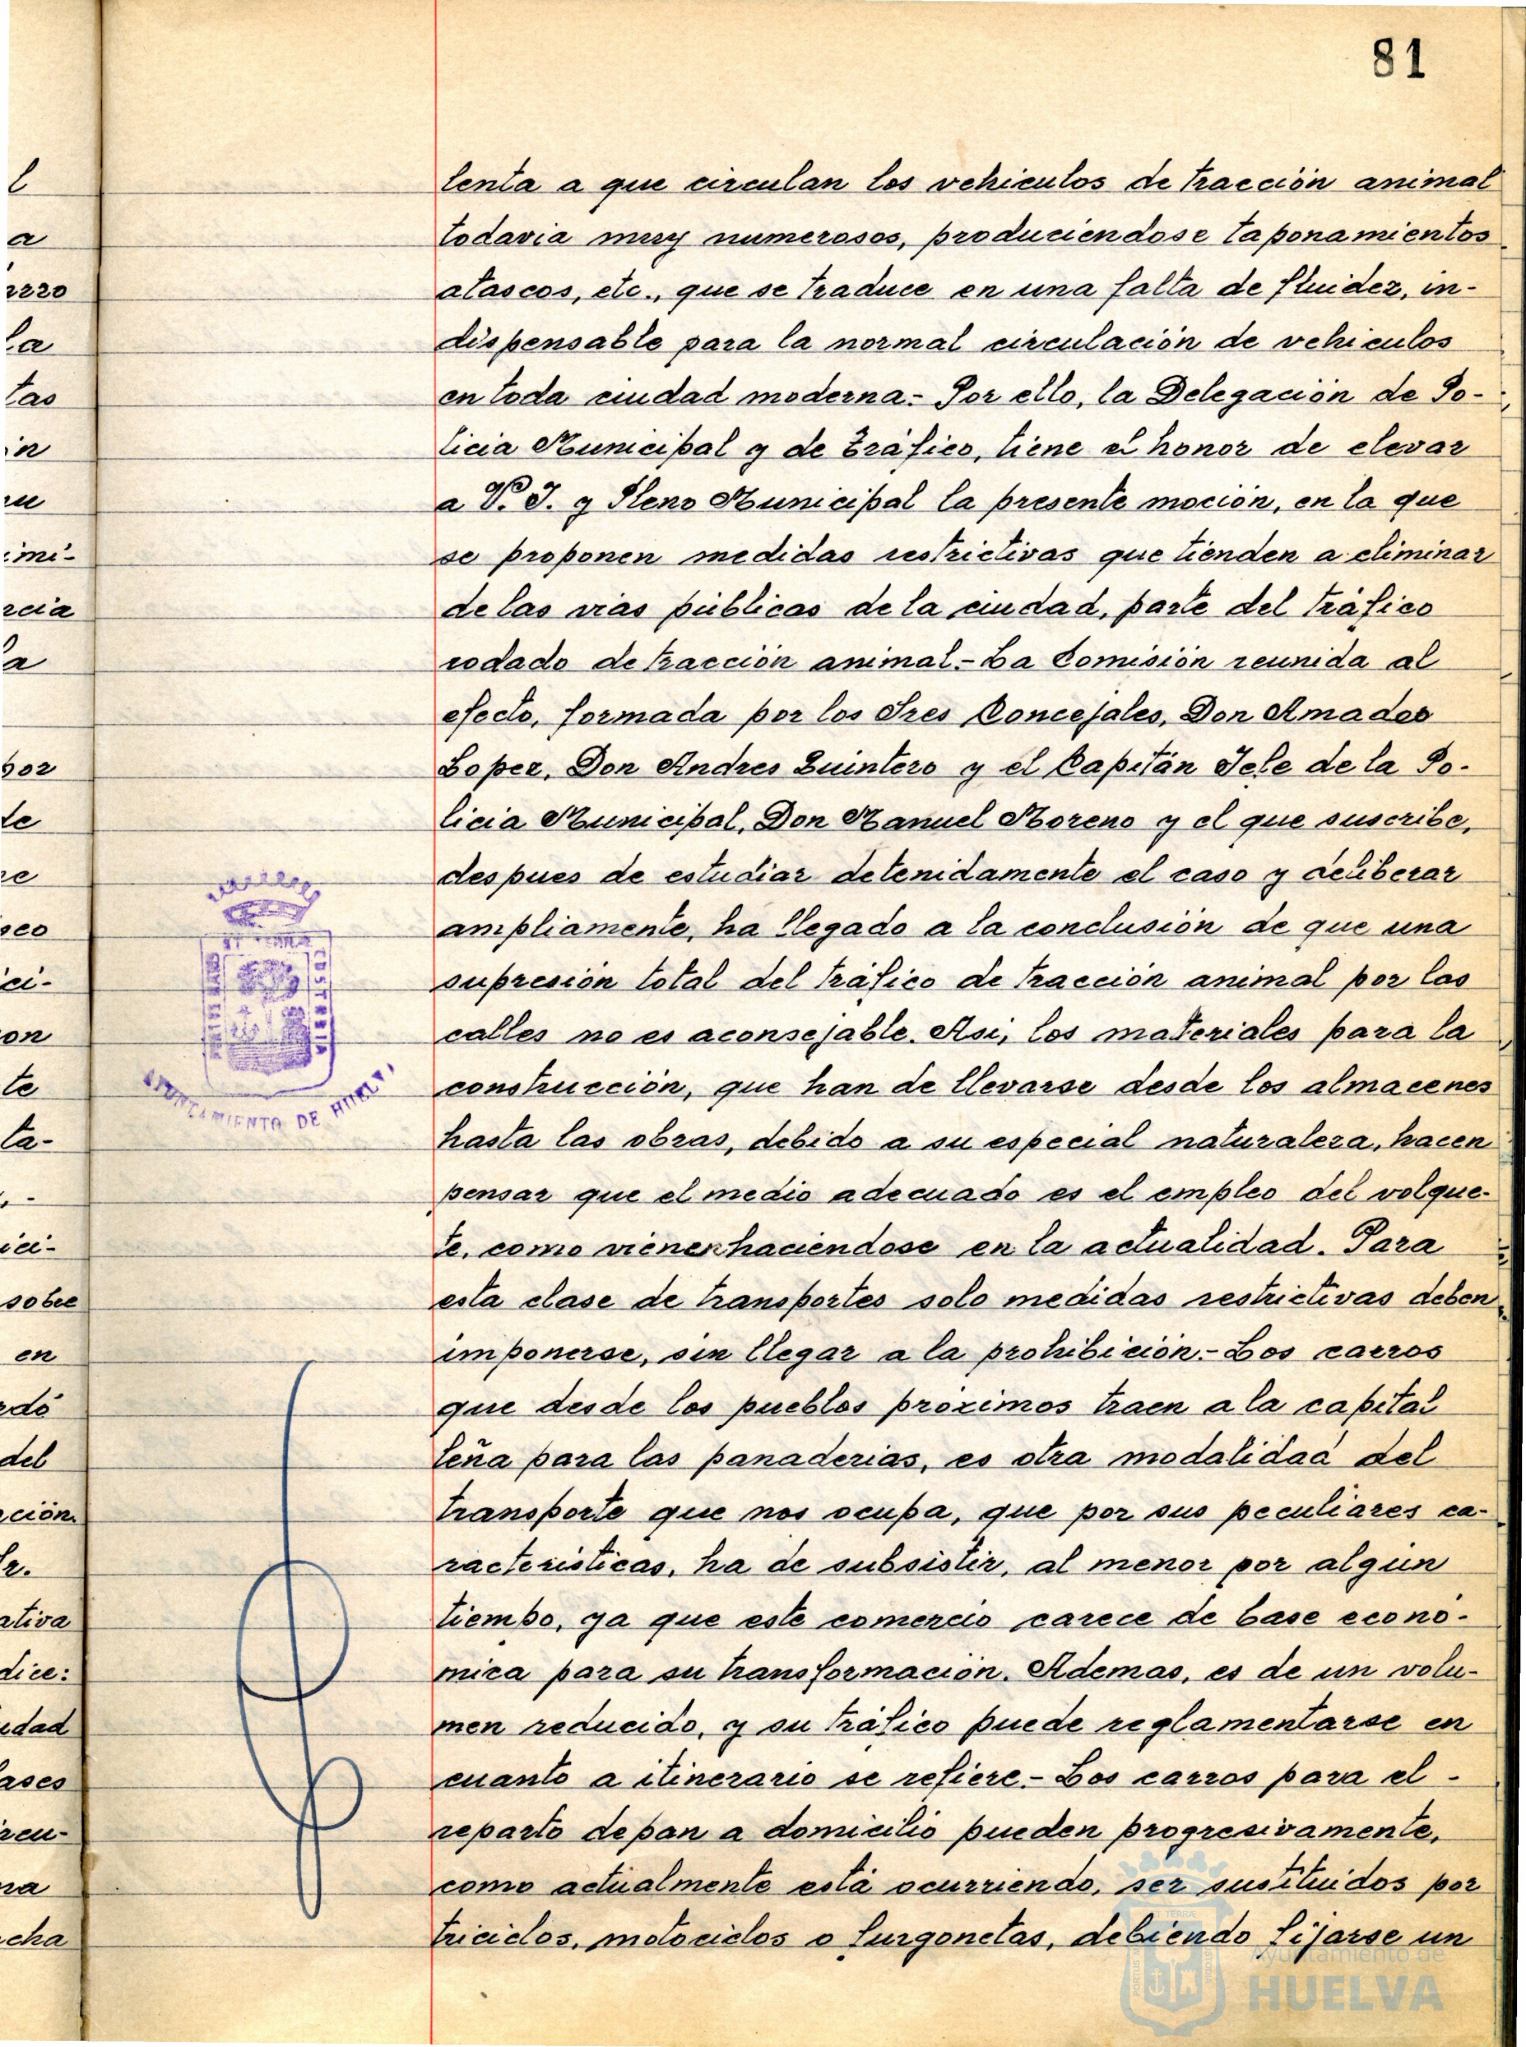 81
lenta a que circulan los vehiculos de tracción animal
todavia muy numerosos, produciendose taponamientos
atascos, etc., que se traduce en una falta de fluidez, in-
dispensable para la normal circulación de vehiculos
en toda ciudad moderna.- Por ello, la Delegación de Po-
licia Municipal y de Tráfico, tiene el honor de elevar
a V. I. y Pleno Municipal la presente moción, en la que
se proponen medidas restrictivas que tienden a eliminar
de las vias públicas de la ciudad, parte del tráfico
rodado de tracción animal.- La Comisión reunida al
efecto, formada por los Sres Concejales, Don Amadeo
Lopez, Don Andres Quintero y el Capitán Jefe de la Po-
licia Municipal, Don Manuel Moreno y el que suscribe,
despues de estudiar detenidamente el caso y deliberar
ampliamente, ha llegado a la conclusión de que una
supresión total del tráfico de tracción animal por las
calles no es aconsejable. Asi, los materiales para la
construcción, que han de llevarse desde los almacenes
hasta las obras, debido a su especial naturaleza, hacen
pensar que el medio adecuado es el empleo del volque-
te, como vienen haciendose en la actualidad. Para
esta clase de transportes solo medidas restrictivas deben
imponerse, sin llegar a la prohibición.- Los carros
que desde los pueblos próximos traen a la capital
leña para las panaderias, es otra modalidad del
transporte que nos ocupa, que por sus peculiares ca-
racteristicas, ha de subsistir, al menor por algún
tiempo, ya que este comercio carece de base econó-
mica para su transformación. Ademas, es de un volu-
men reducido, y su tráfico puede reglamentarse en
cuanto a itinerario se refiere.- Los carros para el -
reparto de pan a domicilio pueden progresivamente,
como actualmente está ocurriendo, ser sustituidos por
triciclos, motociclos o furgonetas, debiendo fijarse un
PORTUS MARIS ET TERRAE CUSTODIA
AYUNTAMIENTO DE HUELVA
l
a
la
tas
imi-
rcia
por
de
on
te
ta-
ici-
sobre
en
rdó
del
ción
ativa
dice:
udad
cha
Ayuntamiento de
HUELVA